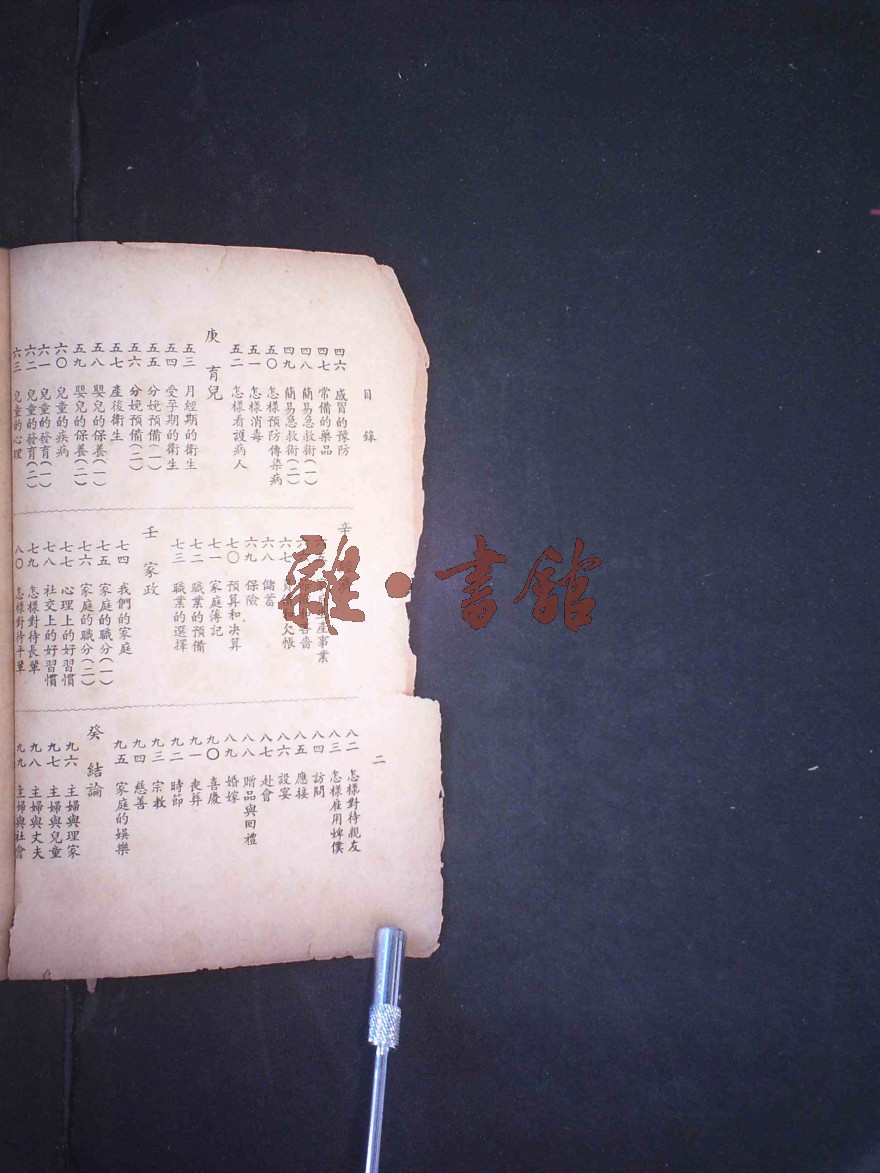 目錄
四六 感冒的豫防
四七 常備的藥品
四八 簡易急救術(一)
四九 簡易急救術(二)
五〇 怎樣預防傳染病
五一 怎樣消毒
五二 怎樣看護病人
庚 育兒
五三 月經期的衞生
五四 受孕期的衞生
五五 分娩預備(一)
五六 分娩預備(二)
五七 產後衞生
五八 嬰兒的保養(一)
五九 嬰兒的保養(二)
六〇 兒童的疾病
六一 兒童的發育(一)
六二 兒童的發育(二)
六三 兒童的心理
辛
生產事業
六七 欠帳
六八 儲蓄
六九 保險
七〇 預算和決算
七一 家庭簿記
七二 職業的預備
七三 職業的選擇
壬 家政
七四 我們的家庭
七五 家庭的職分(一)
七六 家庭的職分(二)
七七 心理上的好習慣
七八 社交上的好習慣
七九 怎樣對待長輩
八〇 怎樣對待平輩
二
八二 怎樣對待親友
八三 怎樣雇用婢僕
八四 訪問
八五 應接
八六 設宴
八七 赴會
八八 贈品與回禮
八九 婚嫁
九〇 喜慶
九一 喪葬
九二 時節
九三 宗教
九四 慈善
九五 家庭的娛樂
癸 結論
九六 主婦與理家
九七 主婦與兒童
九八 主婦與丈夫
九九 主婦與社會
雜·書館